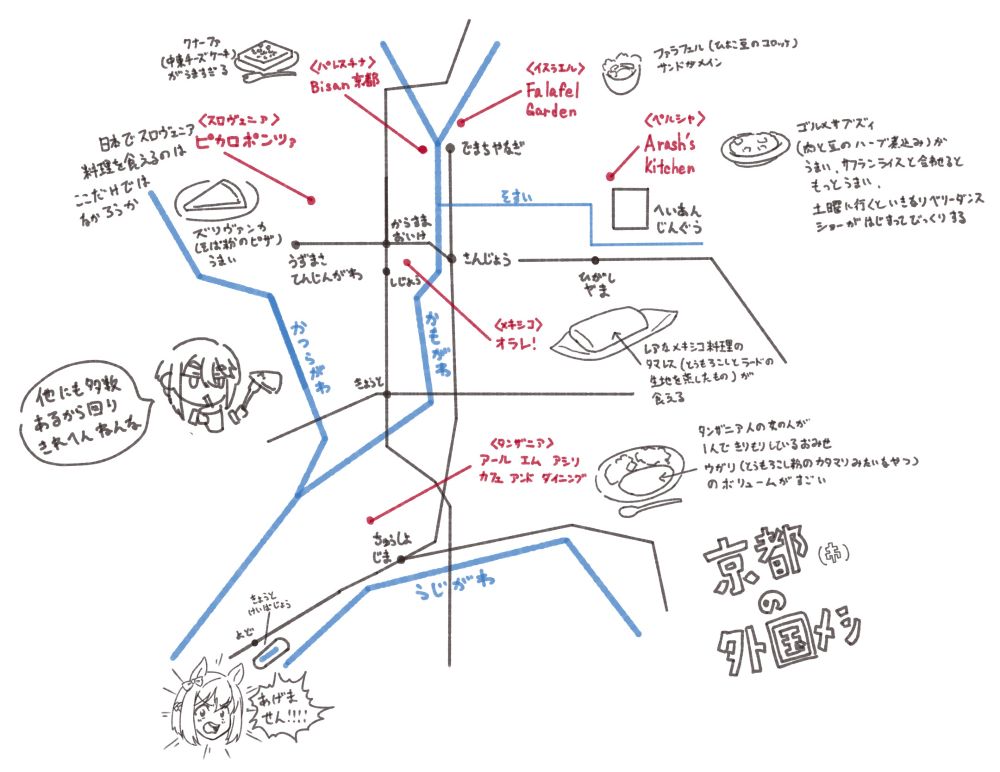 クナーファ
(中東チーズケーキ)
がうますぎる
<パレスチナ>
Bisan 京都
<イスラエル>
Falafel
Garden
ファラフェル(ひよこ豆のコロッケ)
サンドがメイン
<スロヴェニア>
ピカロポンツァ
日本でスロヴェニア
料理を食えるのは
ここだけでは
なかろうか
ズリヴァンカ
(そば粉のピザ)
うまい
<ペルシャ>
Arash's
Kitchen
ゴルメサブズィ
(肉と豆のハーブ煮込み)が
うまい、サフランライスと合わせると
もっとうまい、
土曜に行くといきなりベリーダンス
ショーがはじまってびっくりする
でまちやなぎ
そすい
へいあん
じんぐう
からすま
おいけ
うずまさ
てんじんがわ
さんじょう
しじょう
ひがし
やま
かつらがわ
かもがわ
<メキシコ>
オラレ!
レアなメキシコ料理の
タマレス(とうもろこしとラードの
生地を蒸したもの)が
食える
きょうと
他にも多数
あるから回り
きれへんねんな
<タンザニア>
アール エム アシリ
カフェ アンド ダイニング
タンザニア人の女の人が
1人できりもりしているおみせ
ウガリ(とうもろこし粉のカタマリみたいなやつ)
のボリュームがすごい
ちゅうしょ
じま
うじがわ
きょうと
けいばじょう
よど
あげま
せん!!!!
京都
の
外国メシ